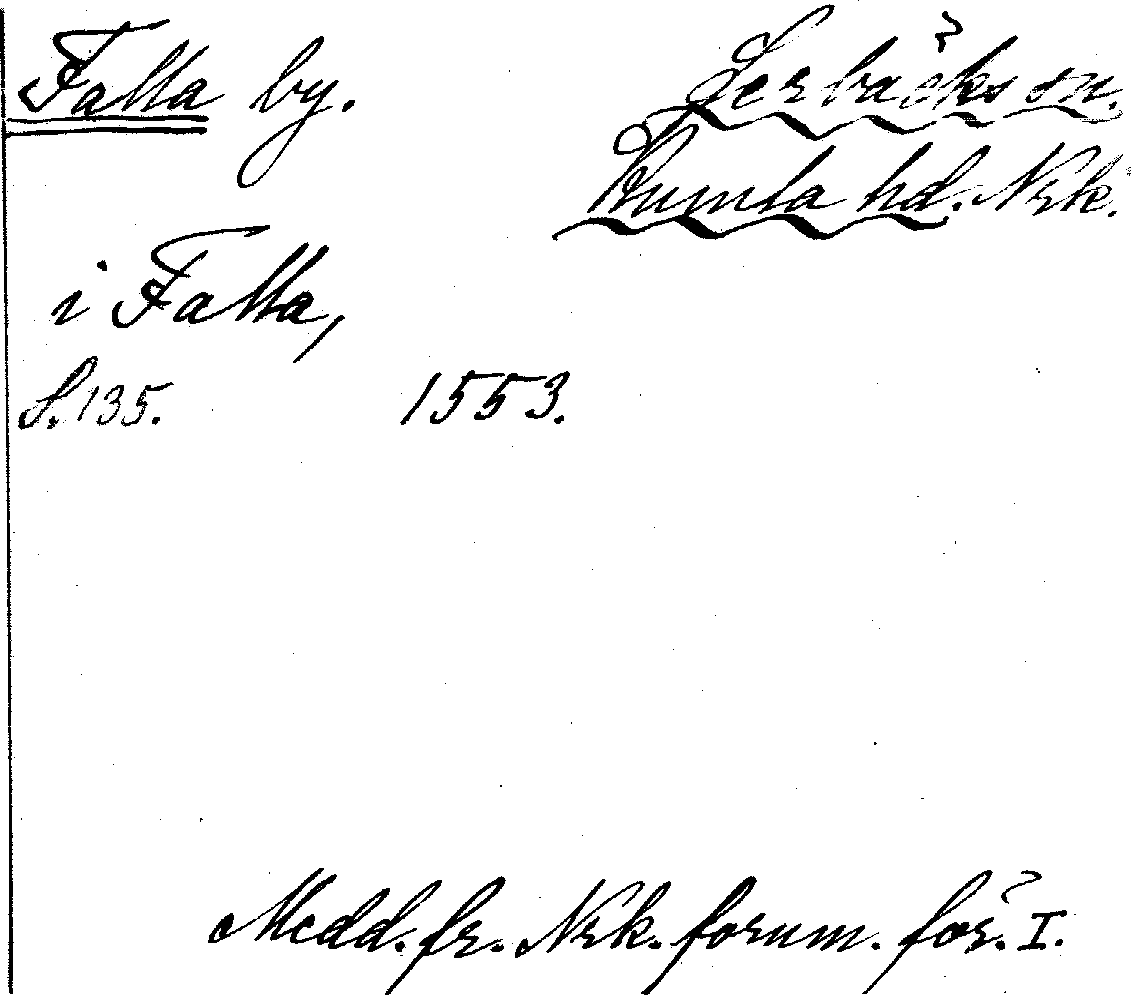 Falla by.
Lerbäcks sn.
Kumla hd. Nrk.
i Falla,
S. 135. 1553.
Medd. fr. Nrk. fornm. för. I.